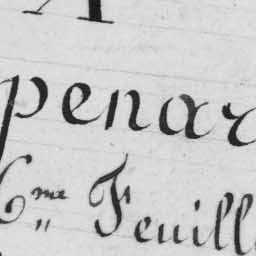 A
penar
6me Feuill